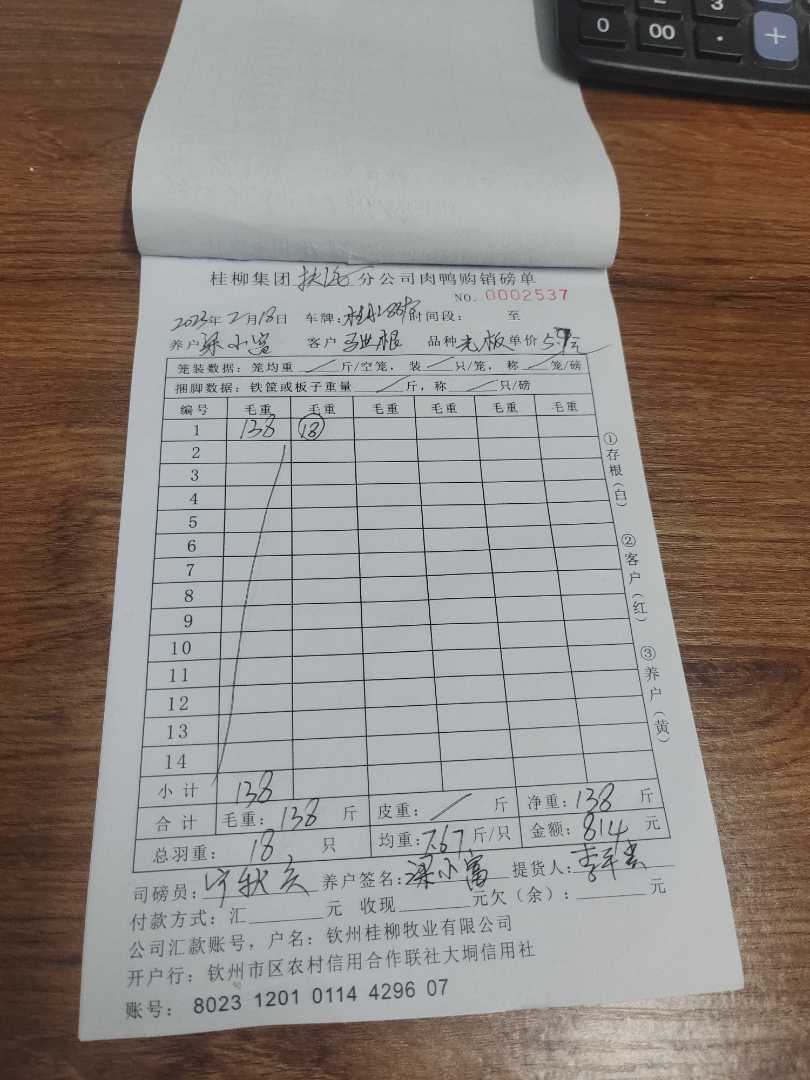 0 00 3 · +
桂柳集团 分公司肉鸭购销磅单
NO. 0002537
2023年2月18日 车牌: 时间段: 至
养户 梁小富 客户 品种 光板 单价 5.9元
笼装数据: 笼均重 / 斤/空笼, 装 / 只/笼, 称 / 笼/磅
捆脚数据: 铁筐或板子重量 / 斤, 称 / 只/磅
编号 毛重 毛重 毛重 毛重 毛重 毛重
1 138 18
2
3
4
5
6
7
8
9
10
11
12
13
14
小计 138
合计 毛重: 138 斤 皮重: / 斤 净重: 138 斤
总羽重: 18 只 均重: 7.67 斤/只 金额: 814 元
司磅员: 养户签名: 梁小富 提货人:
付款方式: 汇 元 收现 元欠(余): 元
公司汇款账号, 户名: 钦州桂柳牧业有限公司
开户行: 钦州市区农村信用合作联社大垌信用社
账号: 8023 1201 0114 4296 07
①存根(白)
②客户(红)
③养户(黄)